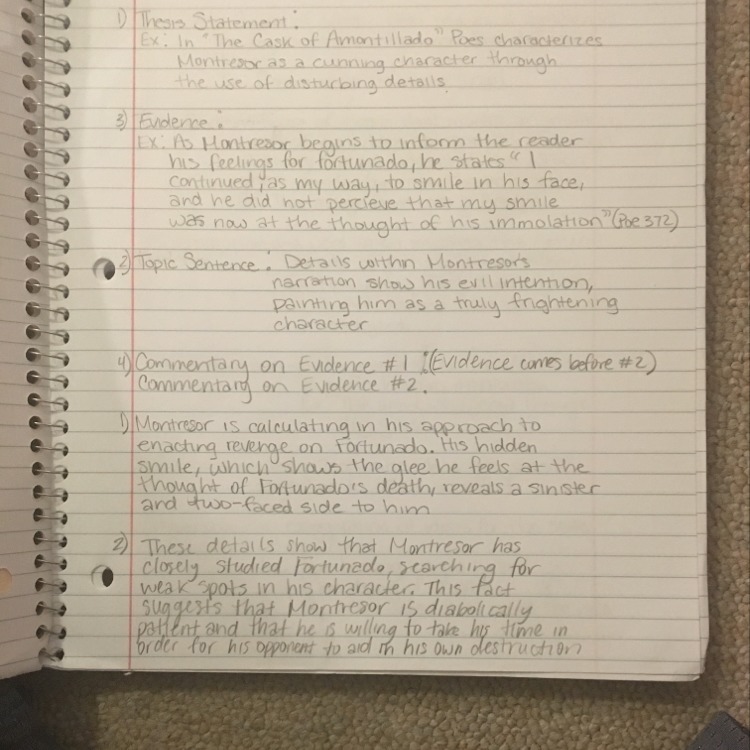 1) Thesis Statement:
Ex: In "The Cask of Amontillado" Poes characterizes
Montresor as a cunning character through
the use of disturbing details.
3) Evidence:
Ex: As Montresor begins to inform the reader
his feelings for fortunado, he states " I
continued, as my way, to smile in his face,
and he did not percieve that my smile
was now at the thought of his immolation" (Poe 372)
2) Topic Sentence: Details within Montresor's
narration show his evil intention,
painting him as a truly frightening
character
4) Commentary on Evidence #1 : (Evidence comes before #2)
Commentary on Evidence #2.
1) Montresor is calculating in his approach to
enacting revenge on Fortunado. His hidden
smile, which shows the glee he feels at the
thought of Fortunado's death, reveals a sinister
and two-faced side to him
2) These details show that Montresor has
closely studied Fortunado, searching for
weak spots in his character. This fact
suggests that Montresor is diabolically
patient and that he is willing to take his time in
order for his opponent to aid in his own destruction